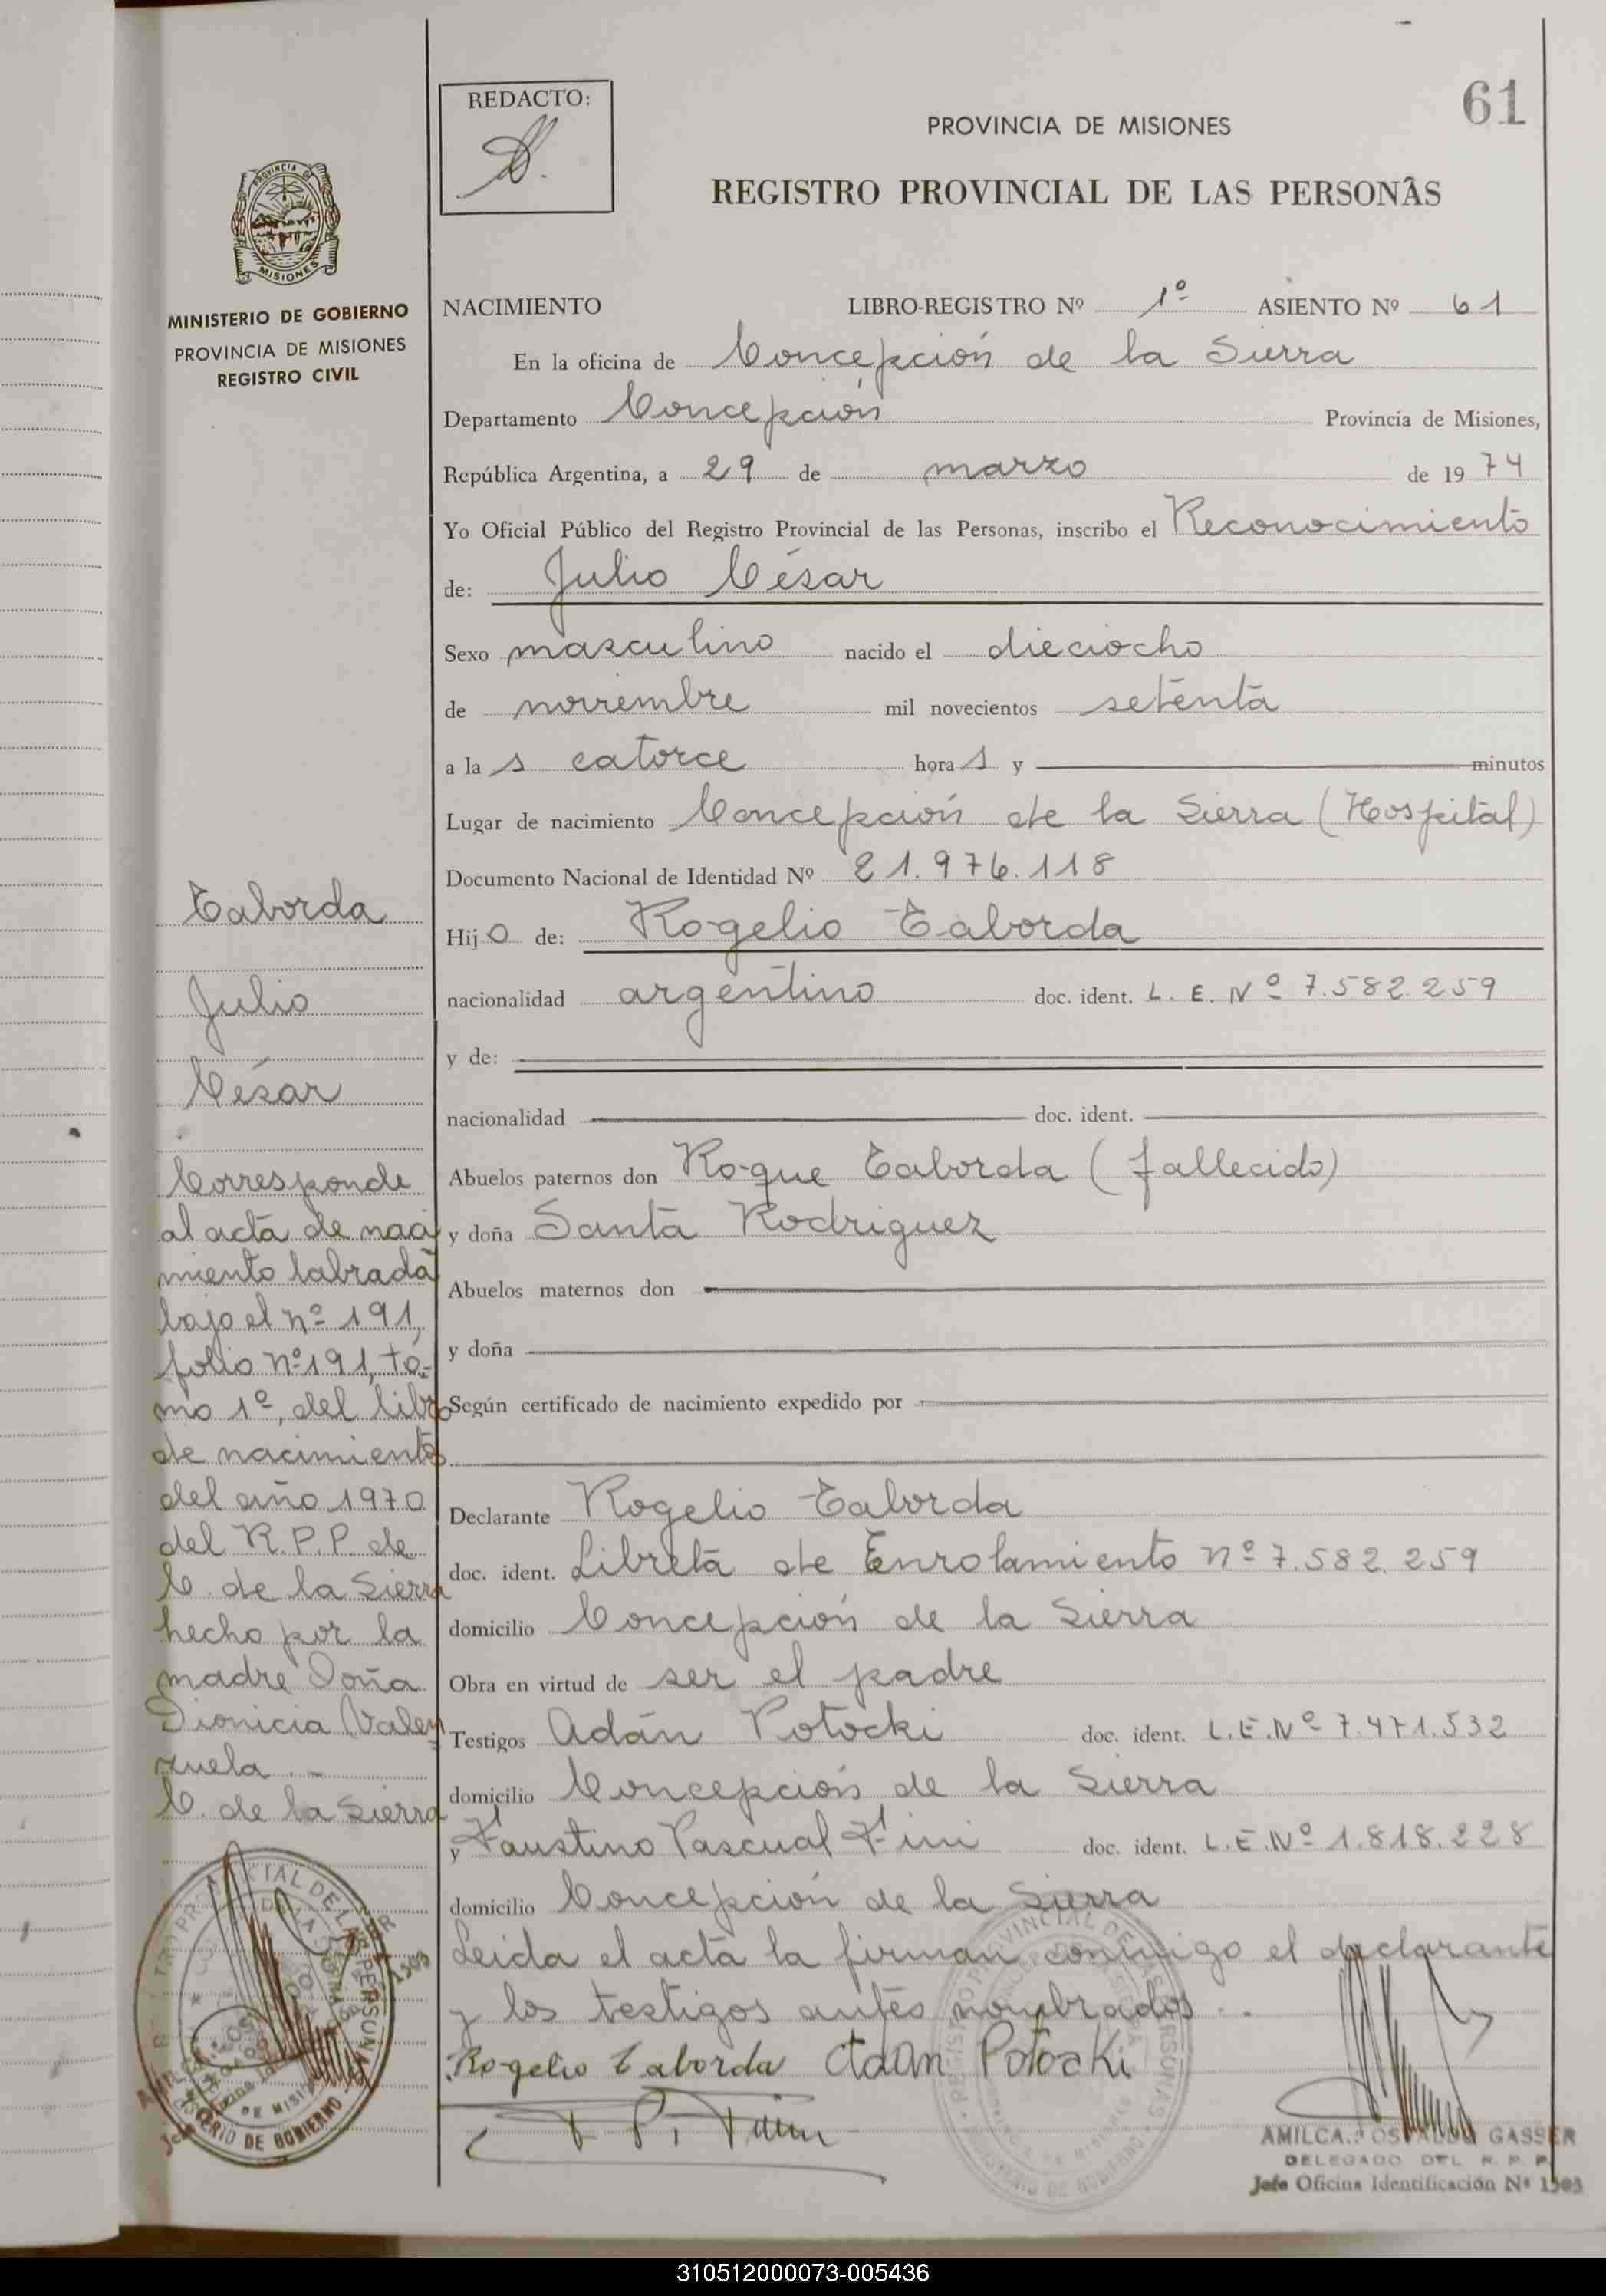 REDACTO:
61
PROVINCIA DE MISIONES
REGISTRO PROVINCIAL DE LAS PERSONAS
PROVINCIA DE
MISIONES
MINISTERIO DE GOBIERNO
PROVINCIA DE MISIONES
REGISTRO CIVIL
NACIMIENTO LIBRO-REGISTRO Nº 1º ASIENTO Nº 61
En la oficina de Concepción de la Sierra
Departamento Concepción Provincia de Misiones,
República Argentina, a 29 de marzo de 1974
Yo Oficial Público del Registro Provincial de las Personas, inscribo el Reconocimiento
de: Julio César
Sexo masculino nacido el dieciocho
de noviembre mil novecientos setenta
a las catorce horas y minutos
Lugar de nacimiento Concepción de la Sierra (Hospital)
Documento Nacional de Identidad Nº 21.976.118
Hijo de: Rogelio Taborda
nacionalidad argentino doc. ident. L. E. Nº 7.582.259
y de:
nacionalidad doc. ident.
Abuelos paternos don Roque Taborda (fallecido)
y doña Santa Rodriguez
Abuelos maternos don
y doña
Según certificado de nacimiento expedido por
Declarante Rogelio Taborda
doc. ident. Libreta de Enrolamiento nº 7.582.259
domicilio Concepción de la Sierra
Obra en virtud de ser el padre
Testigos Adán Potocki doc. ident. L.E.Nº 7.471.532
domicilio Concepción de la Sierra
y Faustino Pascual Fini doc. ident. L.E.Nº 1.818.228
domicilio Concepción de la Sierra
Leida el acta la firman conmigo el declarante
y los testigos antes nombrados.-
Rogelio Taborda Adan Potocki
Taborda
Julio
César
Corresponde
al acta de naci
miento labrada
bajo el nº 191,
folio nº 191, to-
mo 1º, del libro
de nacimientos
del año 1970
del R.P.P. de
C. de la Sierra
hecho por la
madre Doña
Dionicia Valen
zuela.-
C. de la Sierra
AMILCAR OSVALDO GASSER
DELEGADO DEL R. P. P.
Jefe Oficina Identificación Nº 1503
310512000073-005436